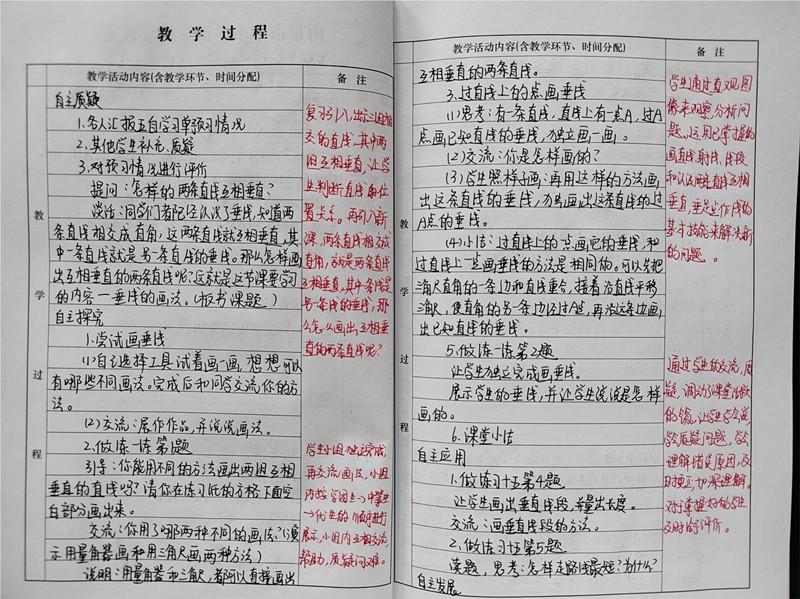 教学过程
教学活动内容(含教学环节、时间分配)
备注
自主质疑
1.各人汇报五自学习单预习情况
2.其他学生补充、质疑
3.对预习情况进行评价
提问:怎样的两条直线互相垂直?
谈话:同学们都已经认识了垂线,知道两
条直线相交成直角,这两条直线就互相垂直,其
中一条直线就是另一条直线的垂线。那么怎样画
出互相垂直的两条直线呢?这就是这节课要学习
的内容—垂线的画法。(板书课题)
自主探究
1.尝试画垂线
(1)自己选择工具试着画一画,想想可以
有哪些不同画法。完成后和同学交流你的方
法。
(2)交流:展作作品,并说说画法。
2.做练一练第1题
引导:你能用不同的方法画出两组互相
垂直的直线吗?请你在练习纸的方格下面空
白部分画出来。
交流:你用了哪两种不同的画法?(演
示用量角器画和用三角尺画两种方法)
说明:用量角器和三角尺,都可以直接画出
复习引入,出示三组相
交的直线,其中两
组互相垂直,让学
生判断直线的位
置关系。再引入新
课,两条直线相交成
直角,就是两条直线
互相垂直,其中一条线是
另一条线的垂线,那
么怎么画出互相垂
直的两条直线呢?
学生小组独立完成,
再交流画法,小组
内按学困生→中等生
→优生的顺序进行
展示,小组内互相交流
帮助,质疑问难。
教
学
过
程
教学活动内容(含教学环节、时间分配)
备注
互相垂直的两条直线。
3.过直线上的点画垂线
(1)思考:有一条直线,直线上有一点A,过A
点画已知直线的垂线,独立画一画。
(2)交流:你是怎样画的?
(3)学生照样子画:再用这样的方法画
出这条直线的垂线,为画出这条直线的过
A点的垂线。
(4)小结:过直线上的点画它的垂线,和
过直线上一点画垂线的方法是相同的。可以先把
三角尺直角的一条边和直线重合,接着沿直线平移
三角尺,使直角的另一条边经过A点,再沿这条边画
出已知直线的垂线。
5.做练一练第2题
让学生独立完成画垂线。
展示学生的垂线,并让学生说说是怎样
画的。
6.课堂小结
自主应用
1.做练习十五第4题
让学生画出垂直线段,并量出长度。
交流:画垂直线段的方法。
2.做练习十五第5题
读题,思考:怎样走路线最短?为什么?
自主发展
学生通过直观图
像来观察,分析问
题,运用已掌握的
画直线,射线,线段
和认识两条直线互相
垂直,垂足定作线的
基本技能来解决新
的问题。
通过学生的交流,质
疑,调动了课堂活跃
的氛围,让学生学会说
学会质疑问题,学会
理解错误原因,及
时更正,加深理解。
对于掌握好的学生
及时的评价。
教
学
过
程